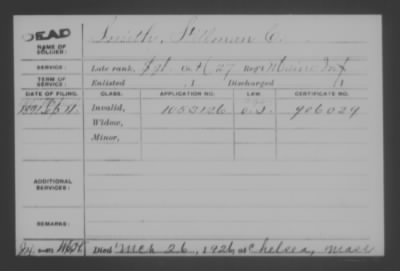 DEAD
NAME OF SOLDIER: Smith, Stillman C.
SERVICE: Late rank, Sgt. Co. H, 27 Reg't Maine Inf
TERM OF SERVICE: Enlisted , 1 Discharged , 1
DATE OF FILING. CLASS. APPLICATION NO. LAW. CERTIFICATE NO.
1891 Invalid, 1053126 906029
Widow,
Minor,
ADDITIONAL SERVICES:
REMARKS:
Died Mch 26, 1926 at Chelsea, Mass